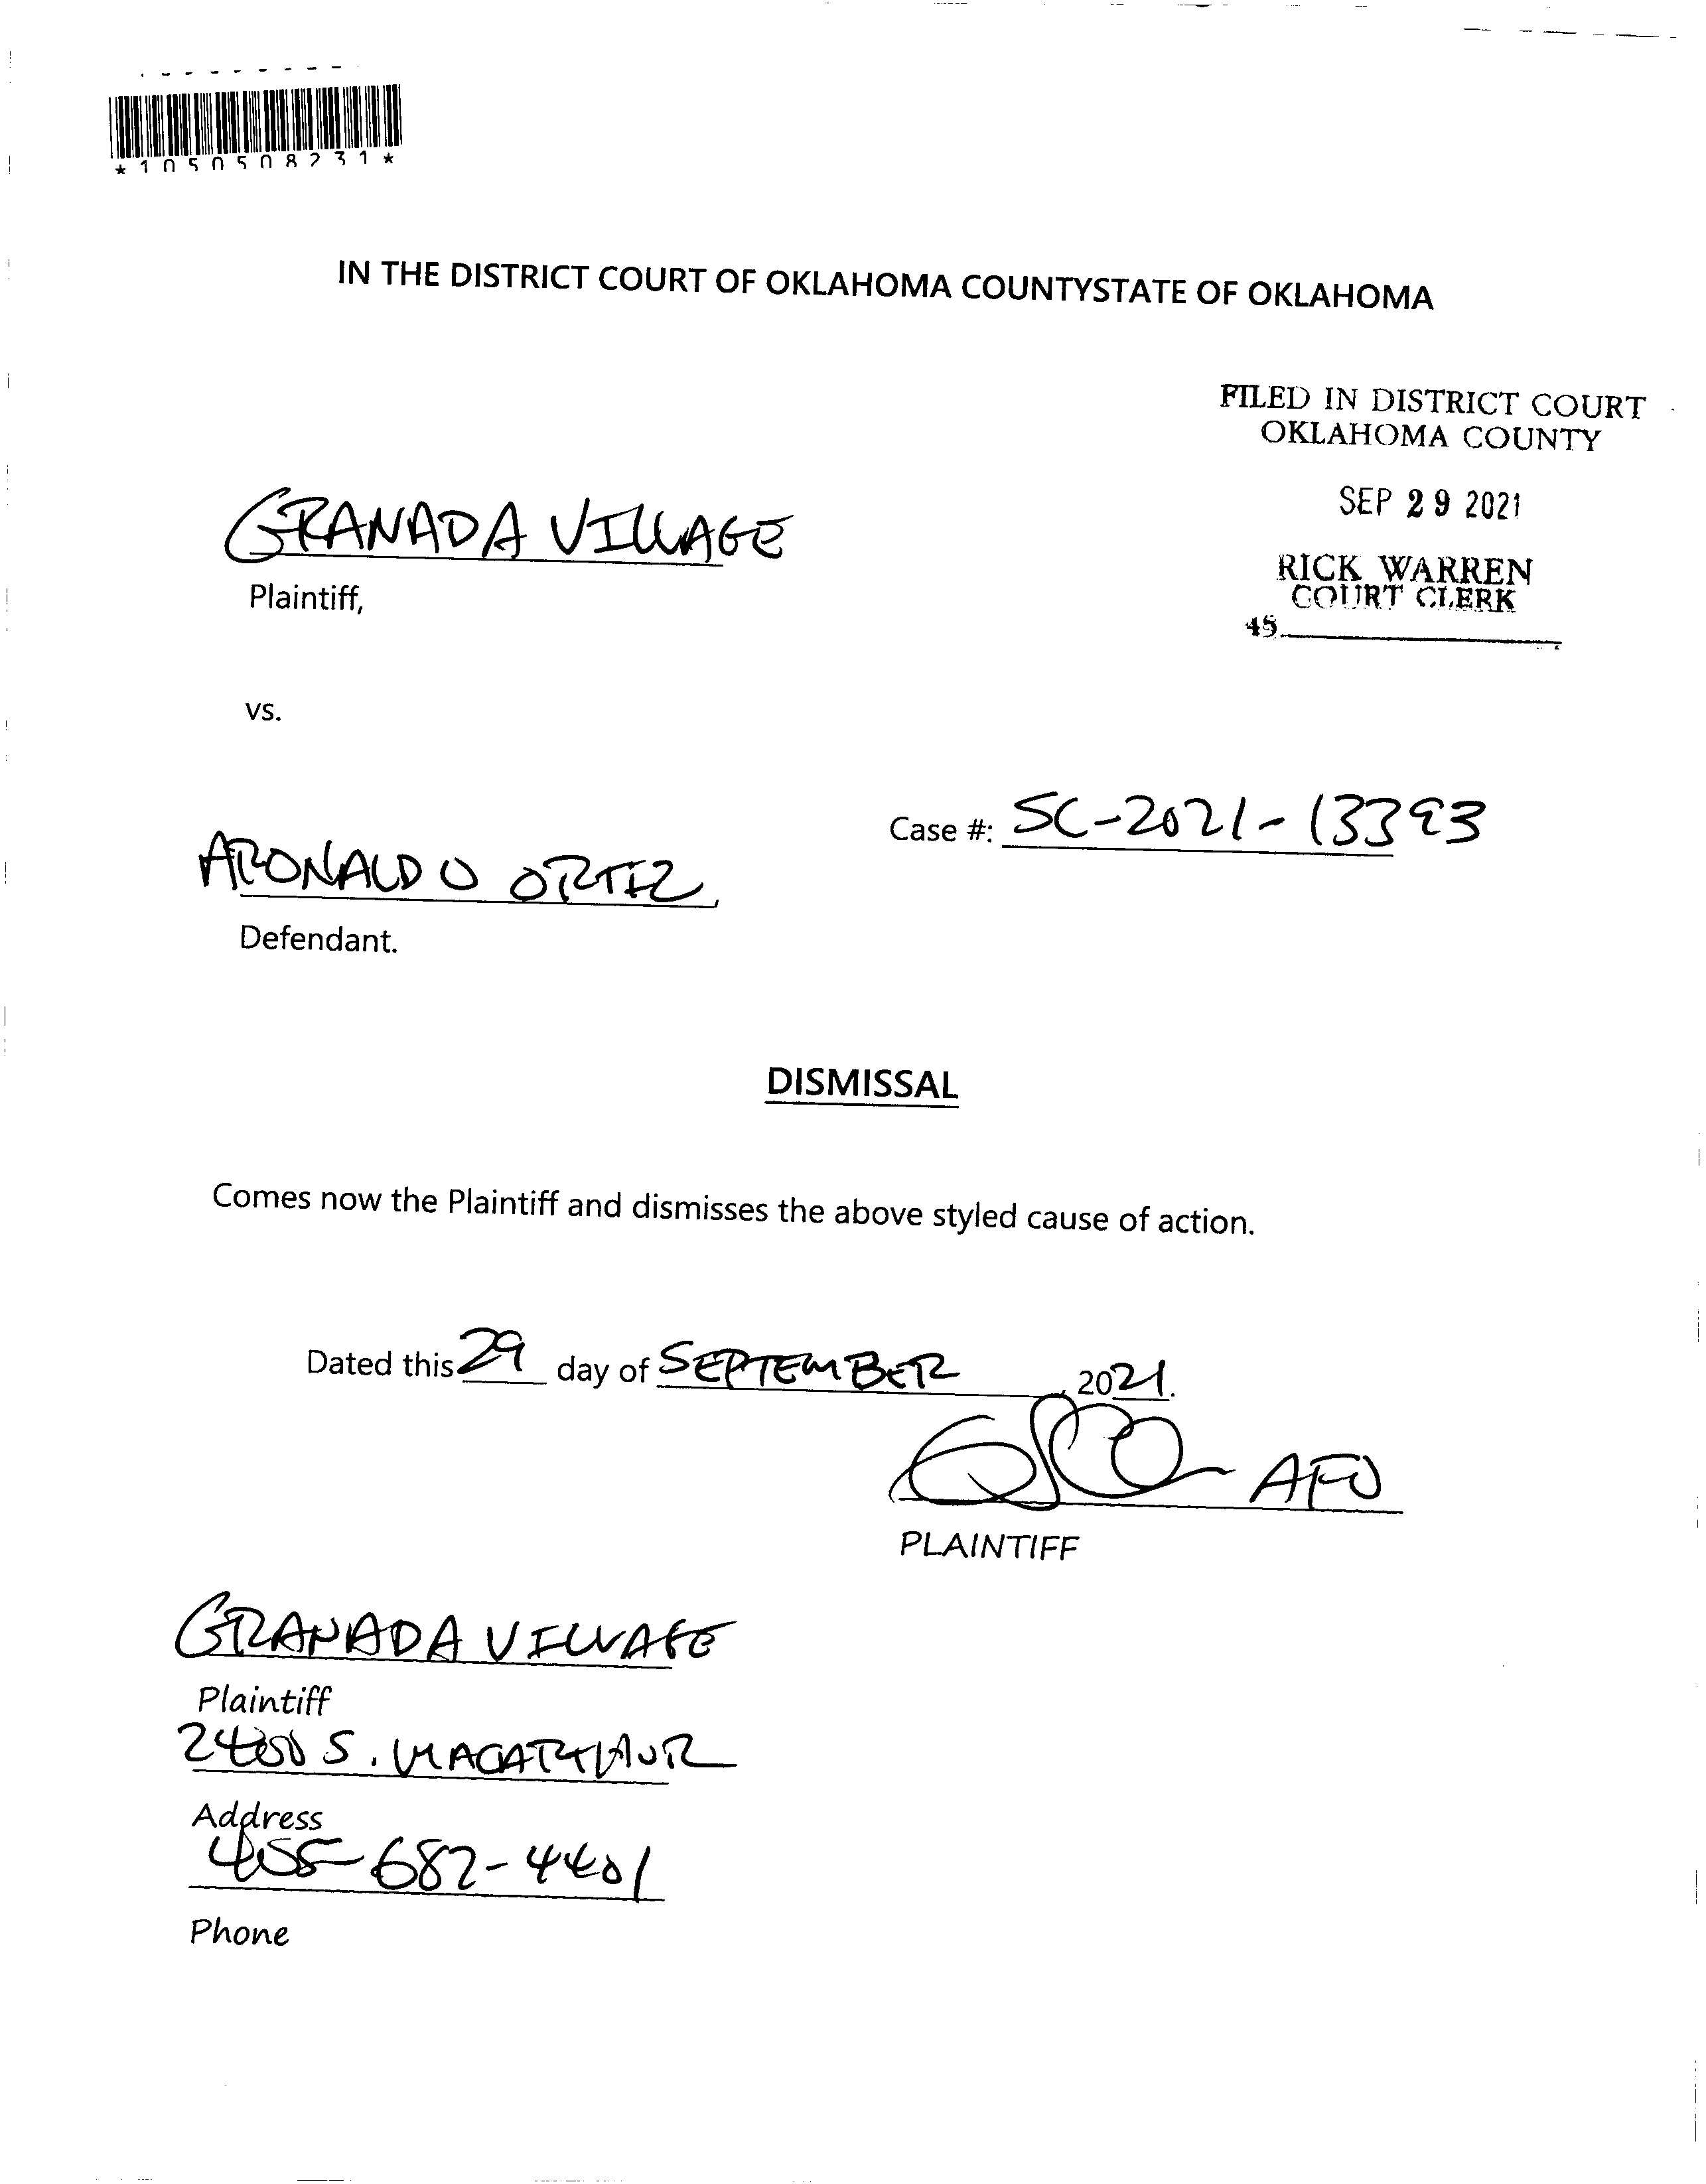 *1050508231*
IN THE DISTRICT COURT OF OKLAHOMA COUNTYSTATE OF OKLAHOMA
FILED IN DISTRICT COURT
OKLAHOMA COUNTY
SEP 29 2021
RICK WARREN
COURT CLERK
45
GRANADA VILLAGE
Plaintiff,
vs.
Case #: SC-2021-13393
ARONALDO ORTIZ,
Defendant.
DISMISSAL
Comes now the Plaintiff and dismisses the above styled cause of action.
Dated this 29 day of SEPTEMBER, 2021.
AFO
PLAINTIFF
GRANADA VILLAGE
Plaintiff
S. MACARTHUR
Address
405-682-4401
Phone